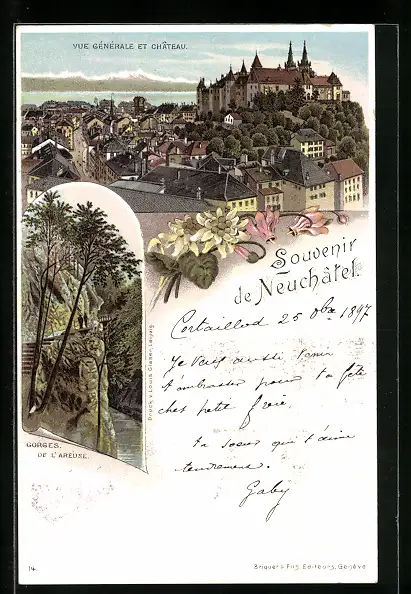 VUE GÉNÉRALE ET CHÂTEAU.
Souvenir
de Neuchâtel.
Cortaillod 25 8bre 1897
Je vais aussi venir
t'embrasser pour ta fête
cher petit frère.
Ta soeur qui t'aime
tendrement.
Gaby
GORGES
DE L'AREUSE.
Druck v. Louis Glaser, Leipzig
14.
Briquet & Fils, Editeurs, Genève